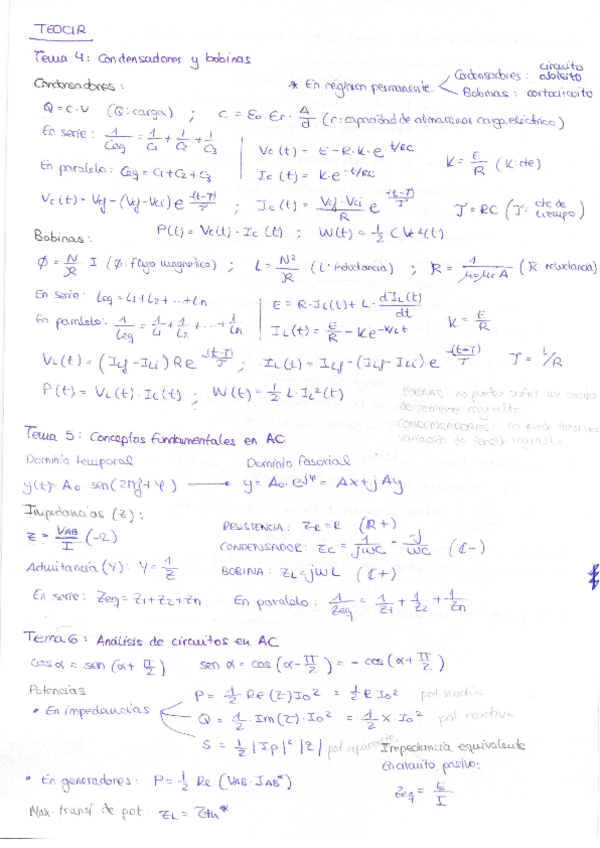 TEOCIR
Tema 4: Condensadores y bobinas
Condensadores:
* En régimen permanente < Condensadores: circuito abierto
Bobinas: cortocircuito
Q = C·V (Q: carga) ; C = ε₀·εr·A/d (C: capacidad de almacenar carga eléctrica)
En serie: 1/Ceq = 1/C₁ + 1/C₂ + 1/C₃
Vc(t) = E - R·K·e^-t/RC
K = E/R (K: cte)
En paralelo: Ceq = C₁ + C₂ + C₃
Ic(t) = K·e^-t/RC
Vc(t) = Vcf - (Vcf - Vci) e^-(t-T)/τ ; Ic(t) = (Vcf - Vci)/R e^-(t-T)/τ
τ = RC (τ: cte de tiempo)
P(t) = Vc(t)·Ic(t) ; W(t) = 1/2 C Vc²(t)
Bobinas:
Φ = N/ℜ I (Φ: flujo magnético) ; L = N²/ℜ (L: inductancia) ; ℜ = 1/μ₀μr A (ℜ reluctancia)
En serie: Leq = L₁ + L₂ + ... + Ln
E = R·IL(t) + L·dIL(t)/dt
En paralelo: 1/Leq = 1/L₁ + 1/L₂ + ... + 1/Ln
IL(t) = E/R - Ke^-R/L t
K = E/R
VL(t) = (ILf - ILi) R e^-(t-T)/τ ; IL(t) = ILf - (ILf - ILi) e^-(t-T)/τ
τ = L/R
P(t) = VL(t)·IL(t) ; W(t) = 1/2 L·IL²(t)
BOBINAS: no pueden sufrir un cambio
CONDENSADORES: no puede tener una
variación de tensión
Tema 5: Conceptos fundamentales en AC
Dominio temporal
Dominio fasorial
y(t) = A₀·sen(2πf + φ) → y = A₀·e^jφ = Ax + jAy
Impedancias (Z):
Z = VAB/I (Ω)
RESISTENCIA: ZR = R (R+)
CONDENSADOR: ZC = 1/jωC = -j/ωC (C-)
Admitancia (Y): Y = 1/Z
BOBINA: ZL = jωL (C+)
En serie: Zeq = Z₁ + Z₂ + Zn
En paralelo: 1/Zeq = 1/Z₁ + 1/Z₂ + 1/Zn
Tema 6: Análisis de circuitos en AC
cos α = sen(α + π/2)
sen α = cos(α - π/2) = -cos(α + π/2)
Potencias
• En impedancias
P = 1/2 Re(Z) I₀² = 1/2 R I₀² pot media
Q = 1/2·Im(Z)·I₀² = 1/2 X·I₀² pot reactiva
S = 1/2 |Ip|² |Z| pot aparente
Impedancia equivalente
En circuito pasivo:
Zeq = E/I
• En generadores: P = 1/2 Re (VAB·IAB*)
Max. transf de pot ZL = Zth*